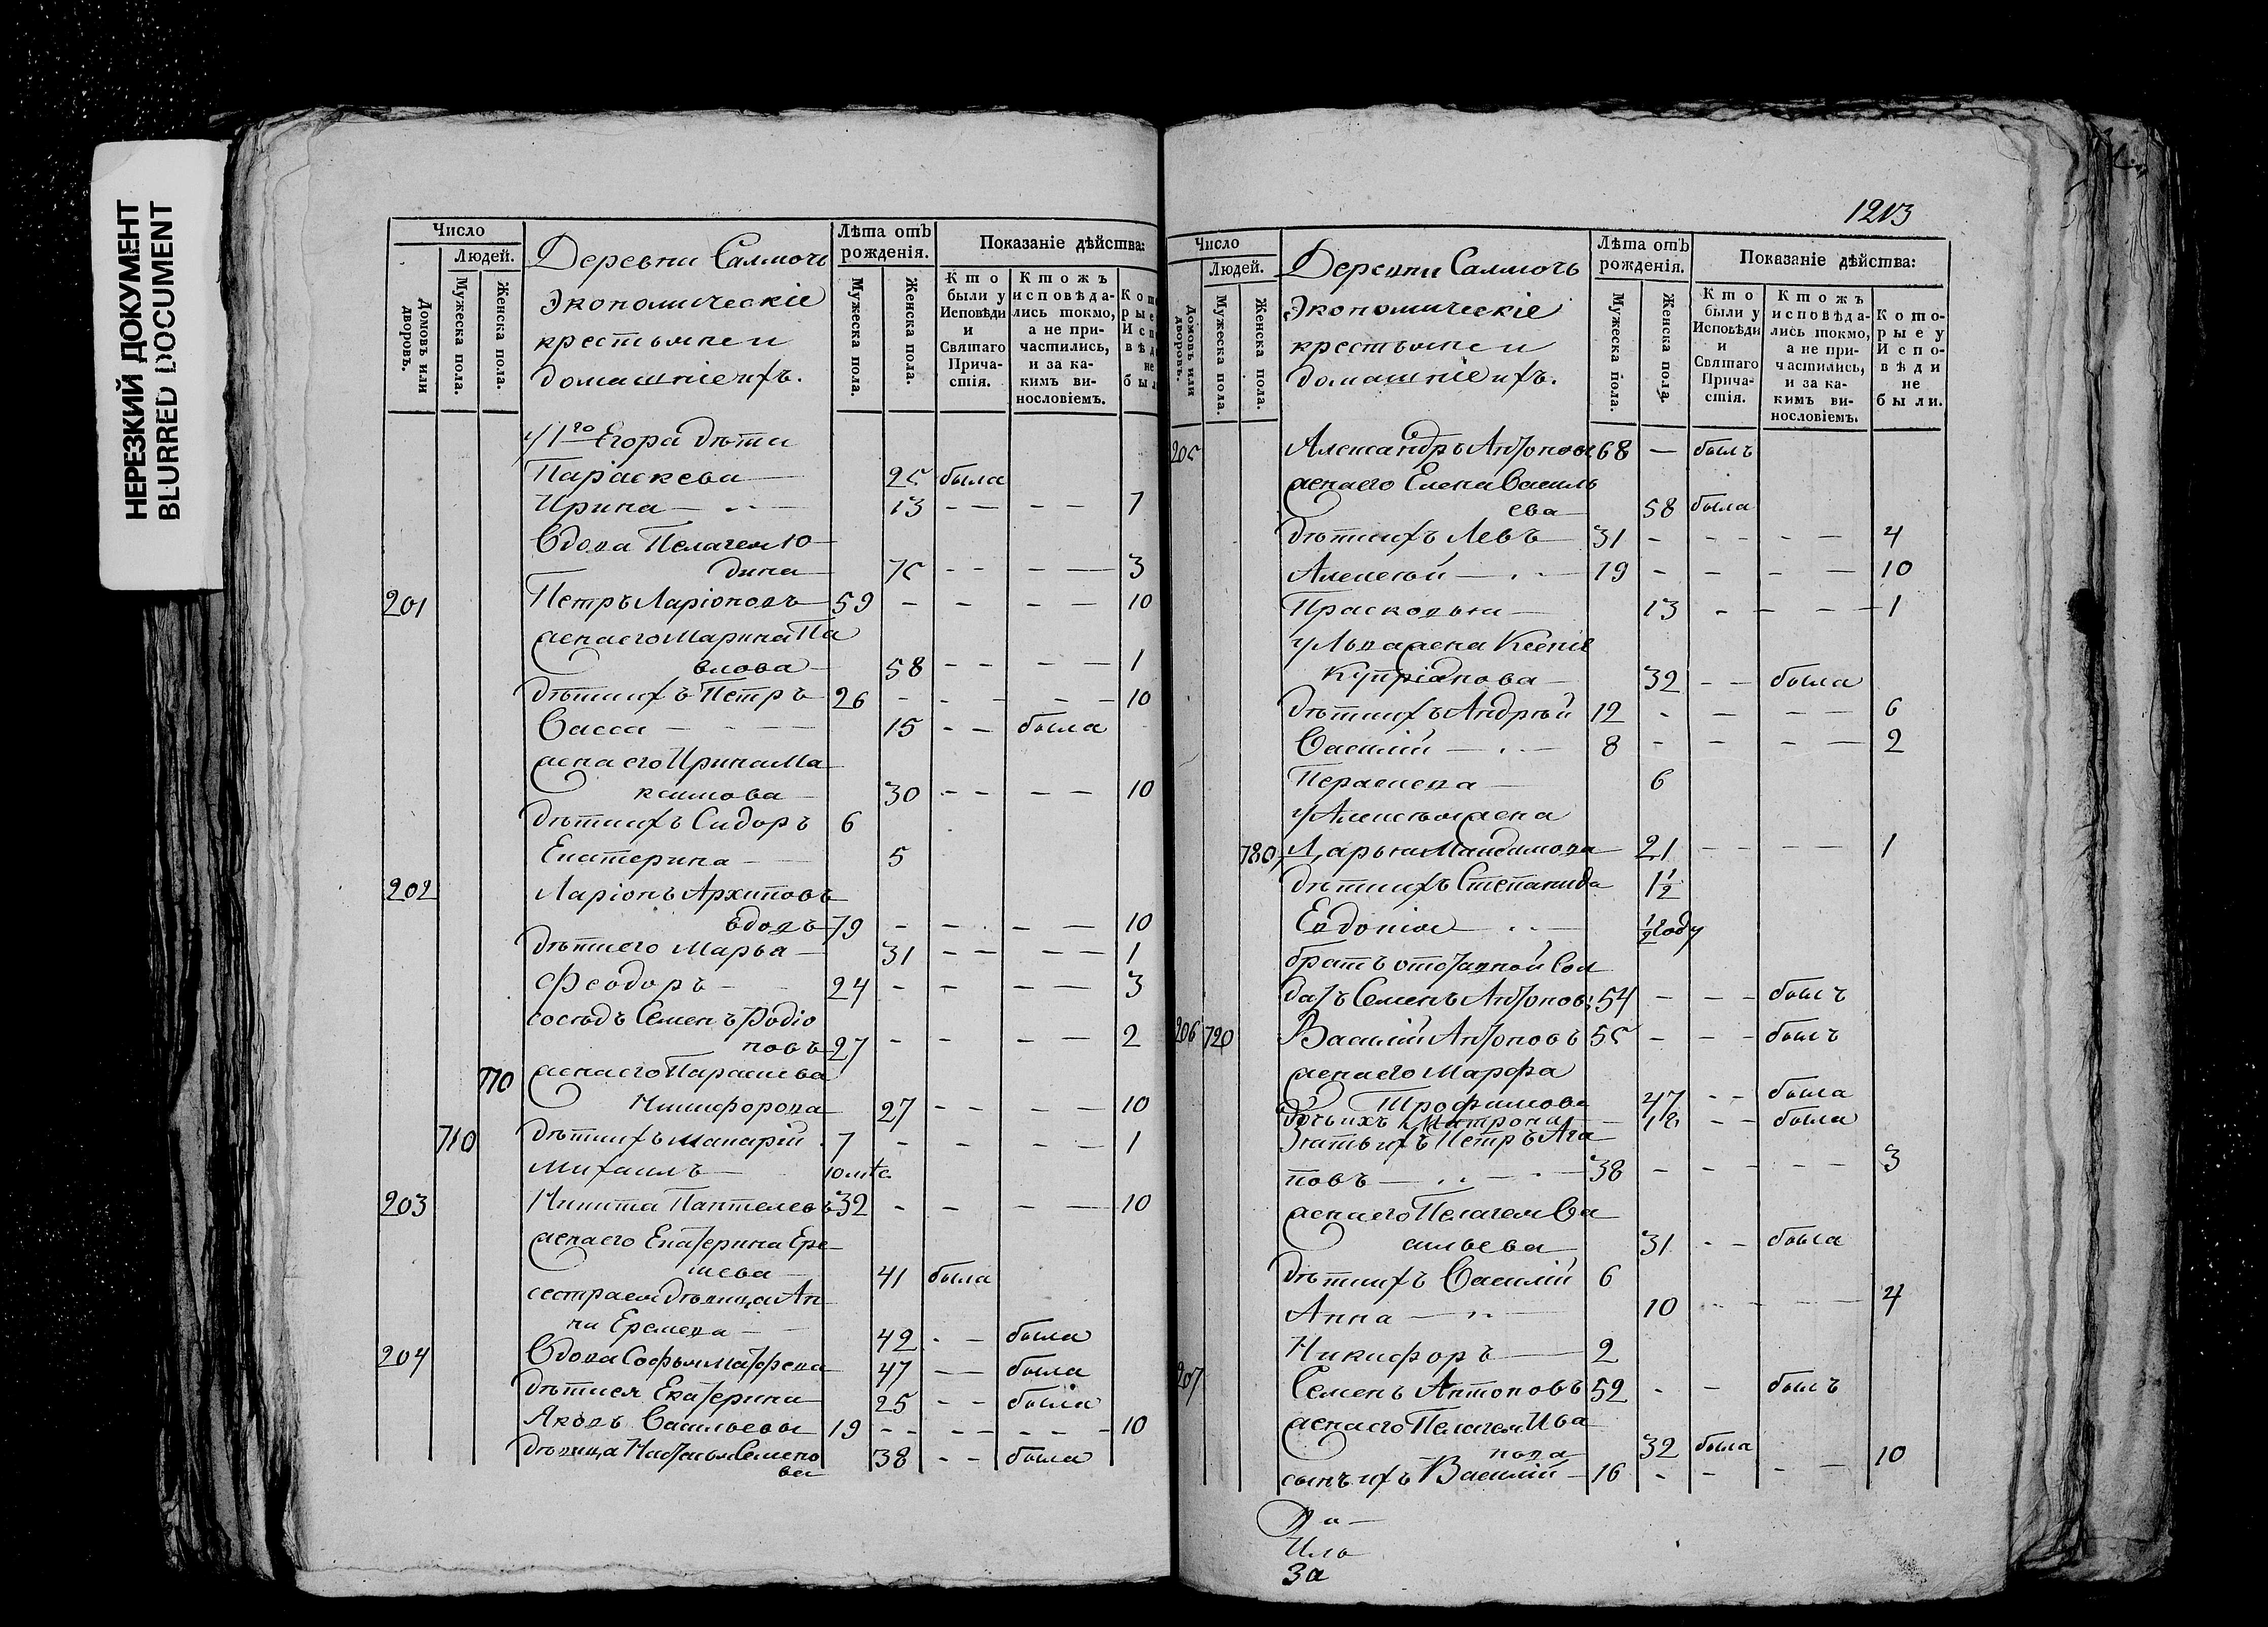 НЕРЕЗКИЙ ДОКУМЕНТ
BLURRED DOCUMENT
Число
Людей.
Домовъ или дворовъ.
Мужеска пола.
Женска пола.
Деревни Салмочь
Экономическіе
крестьяне и
домашніе ихъ.
Лѣта отъ рожденія.
Мужеска пола.
Женска пола.
Показаніе дѣйства:
Кто были у Исповѣди и Святаго Причастія.
Ктожъ исповѣдались токмо, а не причастились, и за какимъ винословіемъ.
у 1го Егора дѣти
Параскева 25 была
Ирина 13 - - - - 7
Вдова Пелагея Ю
дина 75 - - - - 3
201 Петръ Ларіоновъ 59 - - - - 10
жена его Марина Па
влова 58 - - - - 1
дѣти ихъ Петръ 26 - - - - 10
Васса 15 - - была
жена его Ирина Ма
ксимова 30 - - - - 10
дѣти ихъ Сидоръ 6
Екатерина 5
202 Ларіонъ Архиповъ
вдовъ 79 - - - - 10
дѣти его Марья 31 - - - - 1
Феодоръ 24 - - - - 3
сосѣдъ Семенъ Родіо
новъ 27 - - - - 2
770 жена его Параскева
Никифорова 27 - - - - 10
710 дѣти ихъ Макарій 7 - - - - 1
Михаилъ
203 Никита Пантелеевъ 32 - - - - 10
жена его Екатерина Ере
меева 41 была
сестра ея дѣвица Ан
на Еремева 42 - - была
204 Вдова Софья Матфеева 47 - - была
дѣти ея Екатерина 25 - - была
Яковъ Васильевы 19 - - - - 10
дѣвица Настасья Семено
ва 38 - - была
1213
Число
Людей.
Домовъ или дворовъ.
Мужеска пола.
Женска пола.
Деревни Салмочь
Экономическіе
крестьяне и
домашніе ихъ.
Лѣта отъ рожденія.
Мужеска пола.
Женска пола.
Показаніе дѣйства:
Кто были у Исповѣди и Святаго Причастія.
Ктожъ исповѣдались токмо, а не причастились, и за какимъ винословіемъ.
Которые у Исповѣди не были.
205 Александръ Антоновъ 68 - былъ
жена его Елена Василь
ева 58 была
дѣти ихъ Левъ 31 - - - - 4
Алексѣй 19 - - - - 10
Прасковья 13 - - - - 1
у Льва жена Ксенія
Купріанова 32 - - была
дѣти ихъ Андрѣй 12 - - - - 6
Василій 8 - - - - 2
Параскева 6
у Алексѣя жена
780 Дарья Макси­мова 21 - - - - 1
дѣти ихъ Степанида 1½
Евдокія ½ году
братъ отставной сол
датъ Семенъ Антоновъ 54 - - - былъ
206 720 Василій Антоновъ 55 - - - былъ
жена его Марфа
Трофимова 47 - - была
дочь ихъ Матрона 18 - - была
Зять ихъ Петръ Ага
повъ 38 - - - - 3
жена его Пелагея Ва
сильева 31 - - была
дѣти ихъ Василій 6
Анна 10 - - - - 4
Никифоръ 2
207 Семенъ Антоновъ 52 - - былъ
жена его Пелагея Ива
нова 32 была
сынъ ихъ Василій 16 - - - - 10
Иль
За